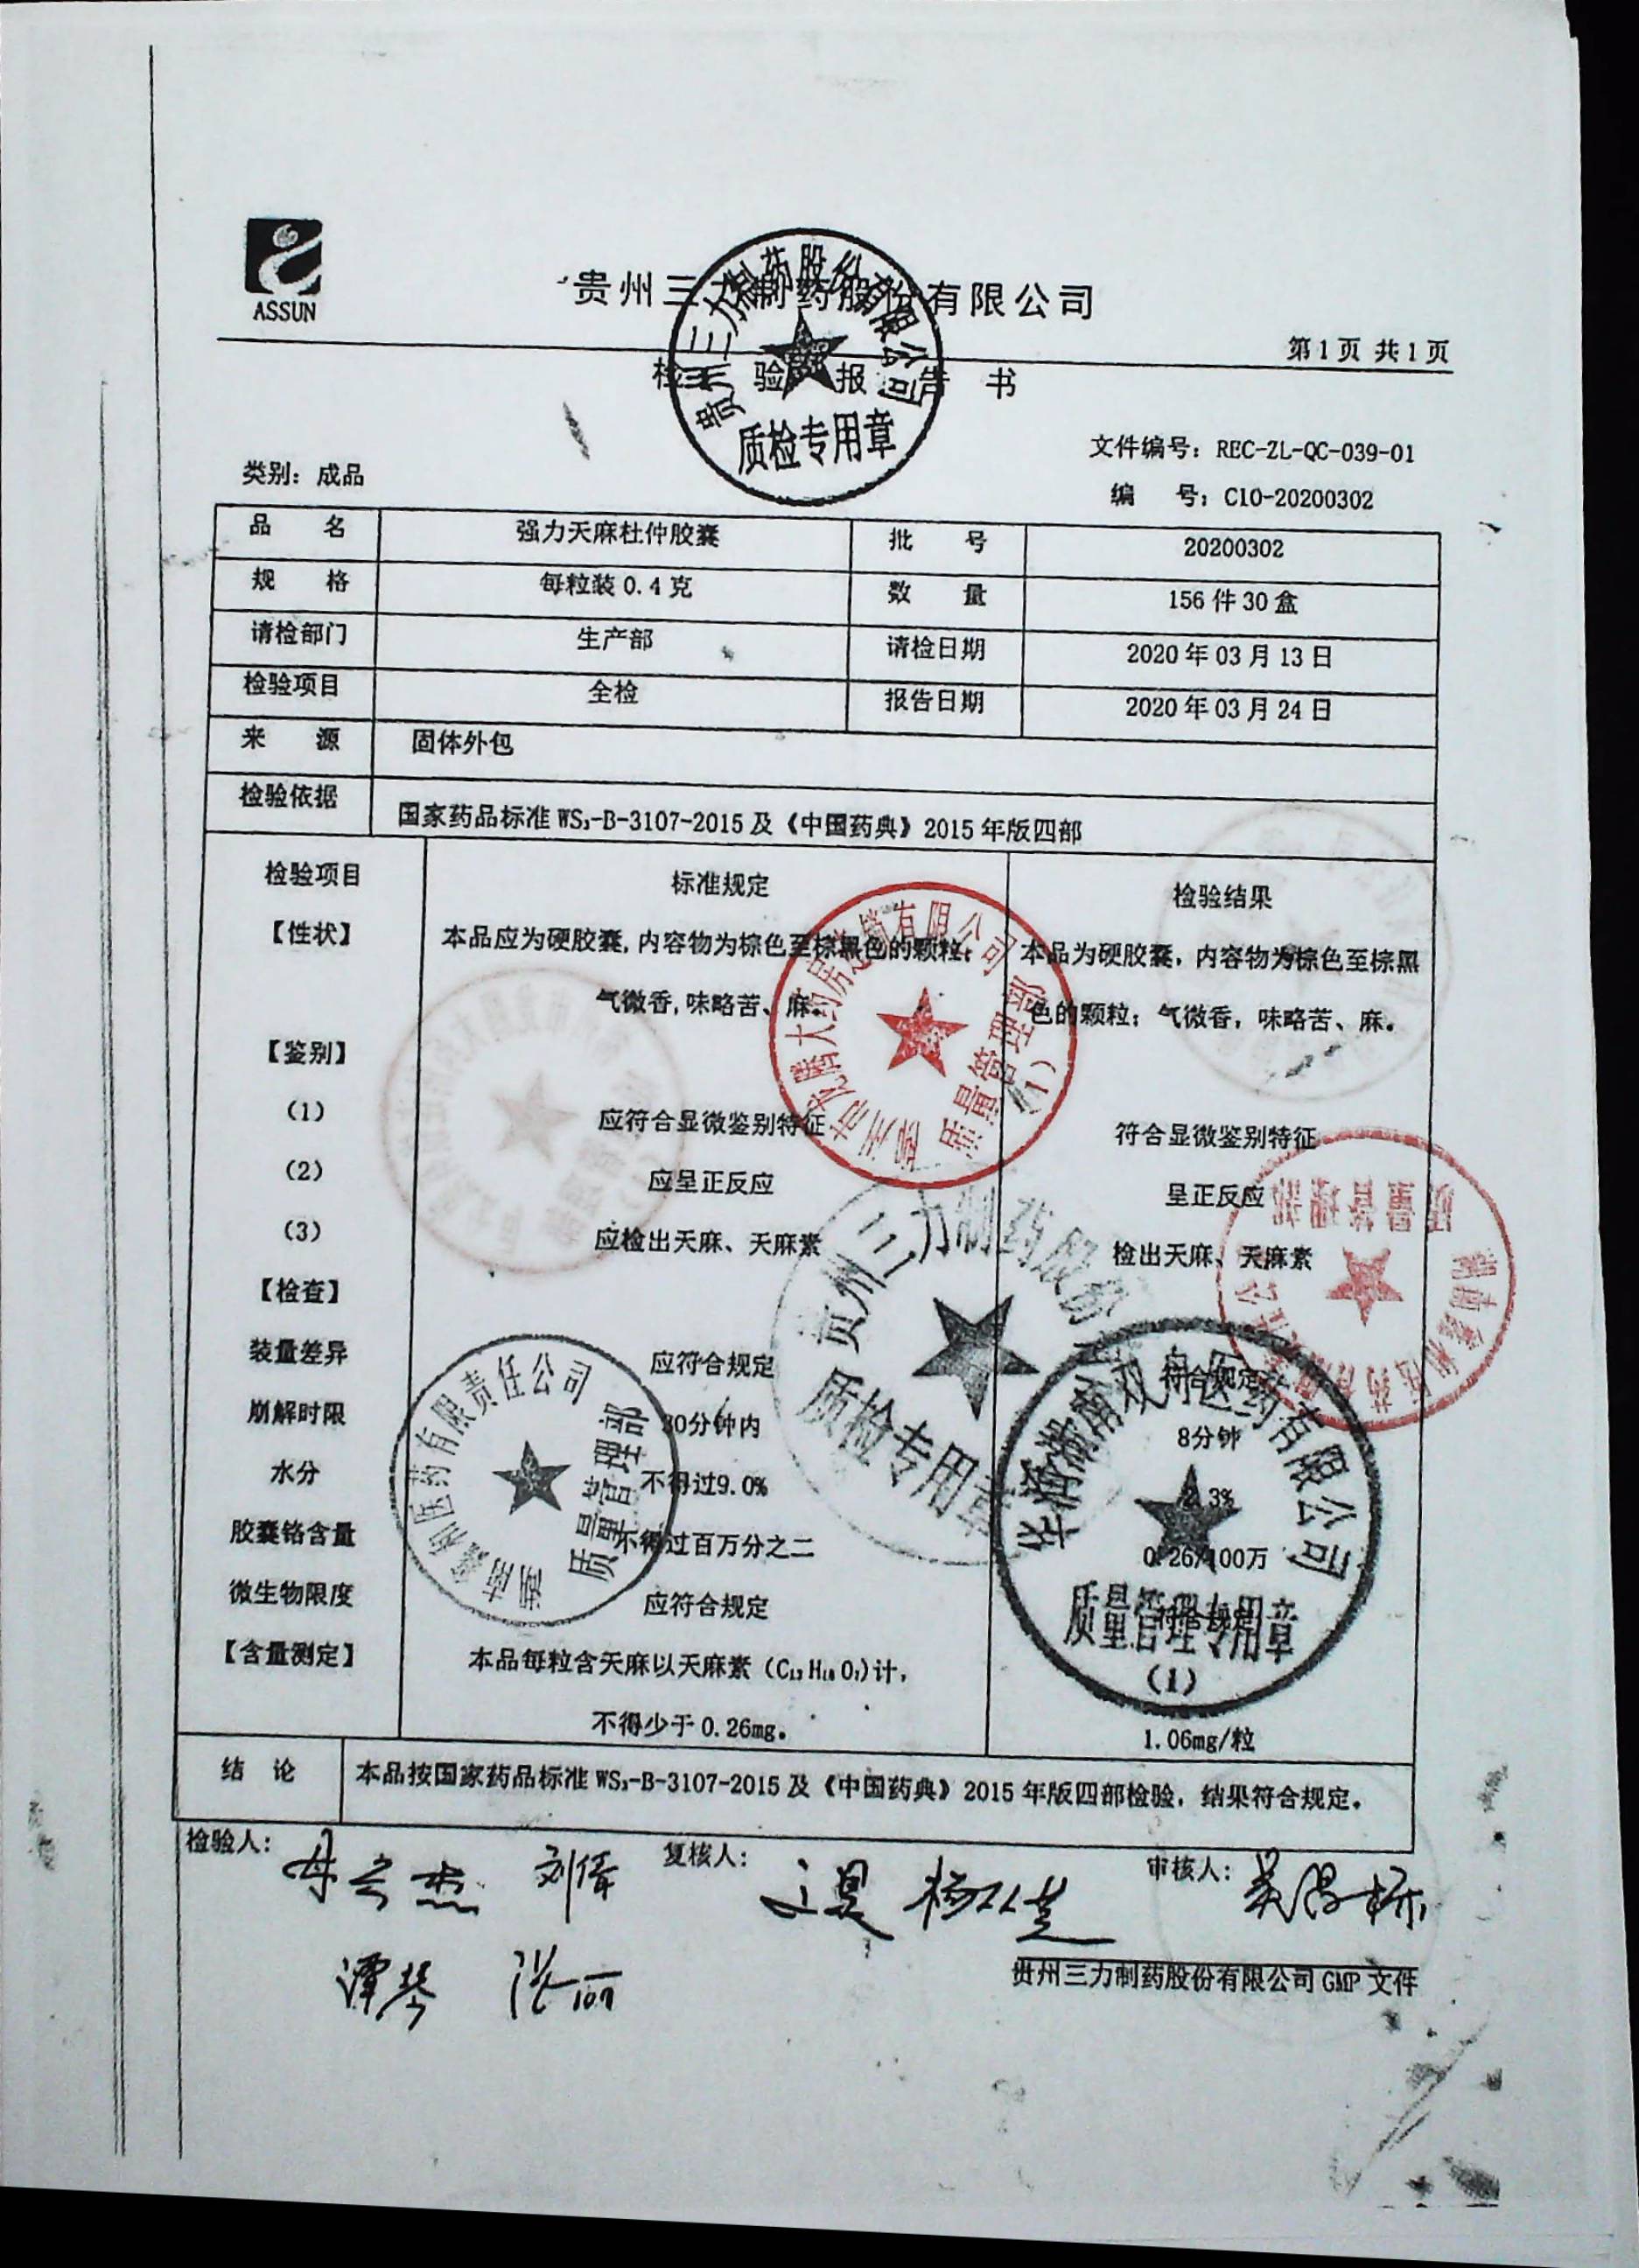 ASSUN
贵州三力制药股份有限公司
第1页 共1页
检验报告书
贵州三力制药股份有限公司
质检专用章
文件编号：REC-ZL-QC-039-01
类别：成品
编 号：C10-20200302
品 名 强力天麻杜仲胶囊 批 号 20200302
规 格 每粒装0.4克 数 量 156件30盒
请检部门 生产部 请检日期 2020年03月13日
检验项目 全检 报告日期 2020年03月24日
来 源 固体外包
检验依据 国家药品标准WS₃-B-3107-2015及《中国药典》2015年版四部
检验项目 标准规定 检验结果
【性状】 本品应为硬胶囊，内容物为棕色至棕黑色的颗粒； 本品为硬胶囊，内容物为棕色至棕黑
气微香，味略苦、麻。 色的颗粒；气微香，味略苦、麻。
【鉴别】
（1） 应符合显微鉴别特征 符合显微鉴别特征
（2） 应呈正反应 呈正反应
（3） 应检出天麻、天麻素 检出天麻、天麻素
【检查】
装量差异 应符合规定 符合规定
崩解时限 30分钟内 8分钟
水分 不得过9.0% 3%
胶囊铬含量 不得过百万分之二 0.26/100万
微生物限度 应符合规定 符合规定
【含量测定】 本品每粒含天麻以天麻素（C₁₃H₁₈O₇）计，
不得少于0.26mg。 1.06mg/粒
结 论 本品按国家药品标准WS₃-B-3107-2015及《中国药典》2015年版四部检验，结果符合规定。
大药房连锁有限公司
质量管理部
（1）
质量管理部
贵州三力制药股份
质检专用章
医药有限责任公司
质量管理部
双舟医药有限公司
质量管理专用章
（1）
检验人： 刘倩 复核人： 审核人：
谭琴 张丽
贵州三力制药股份有限公司GMP文件